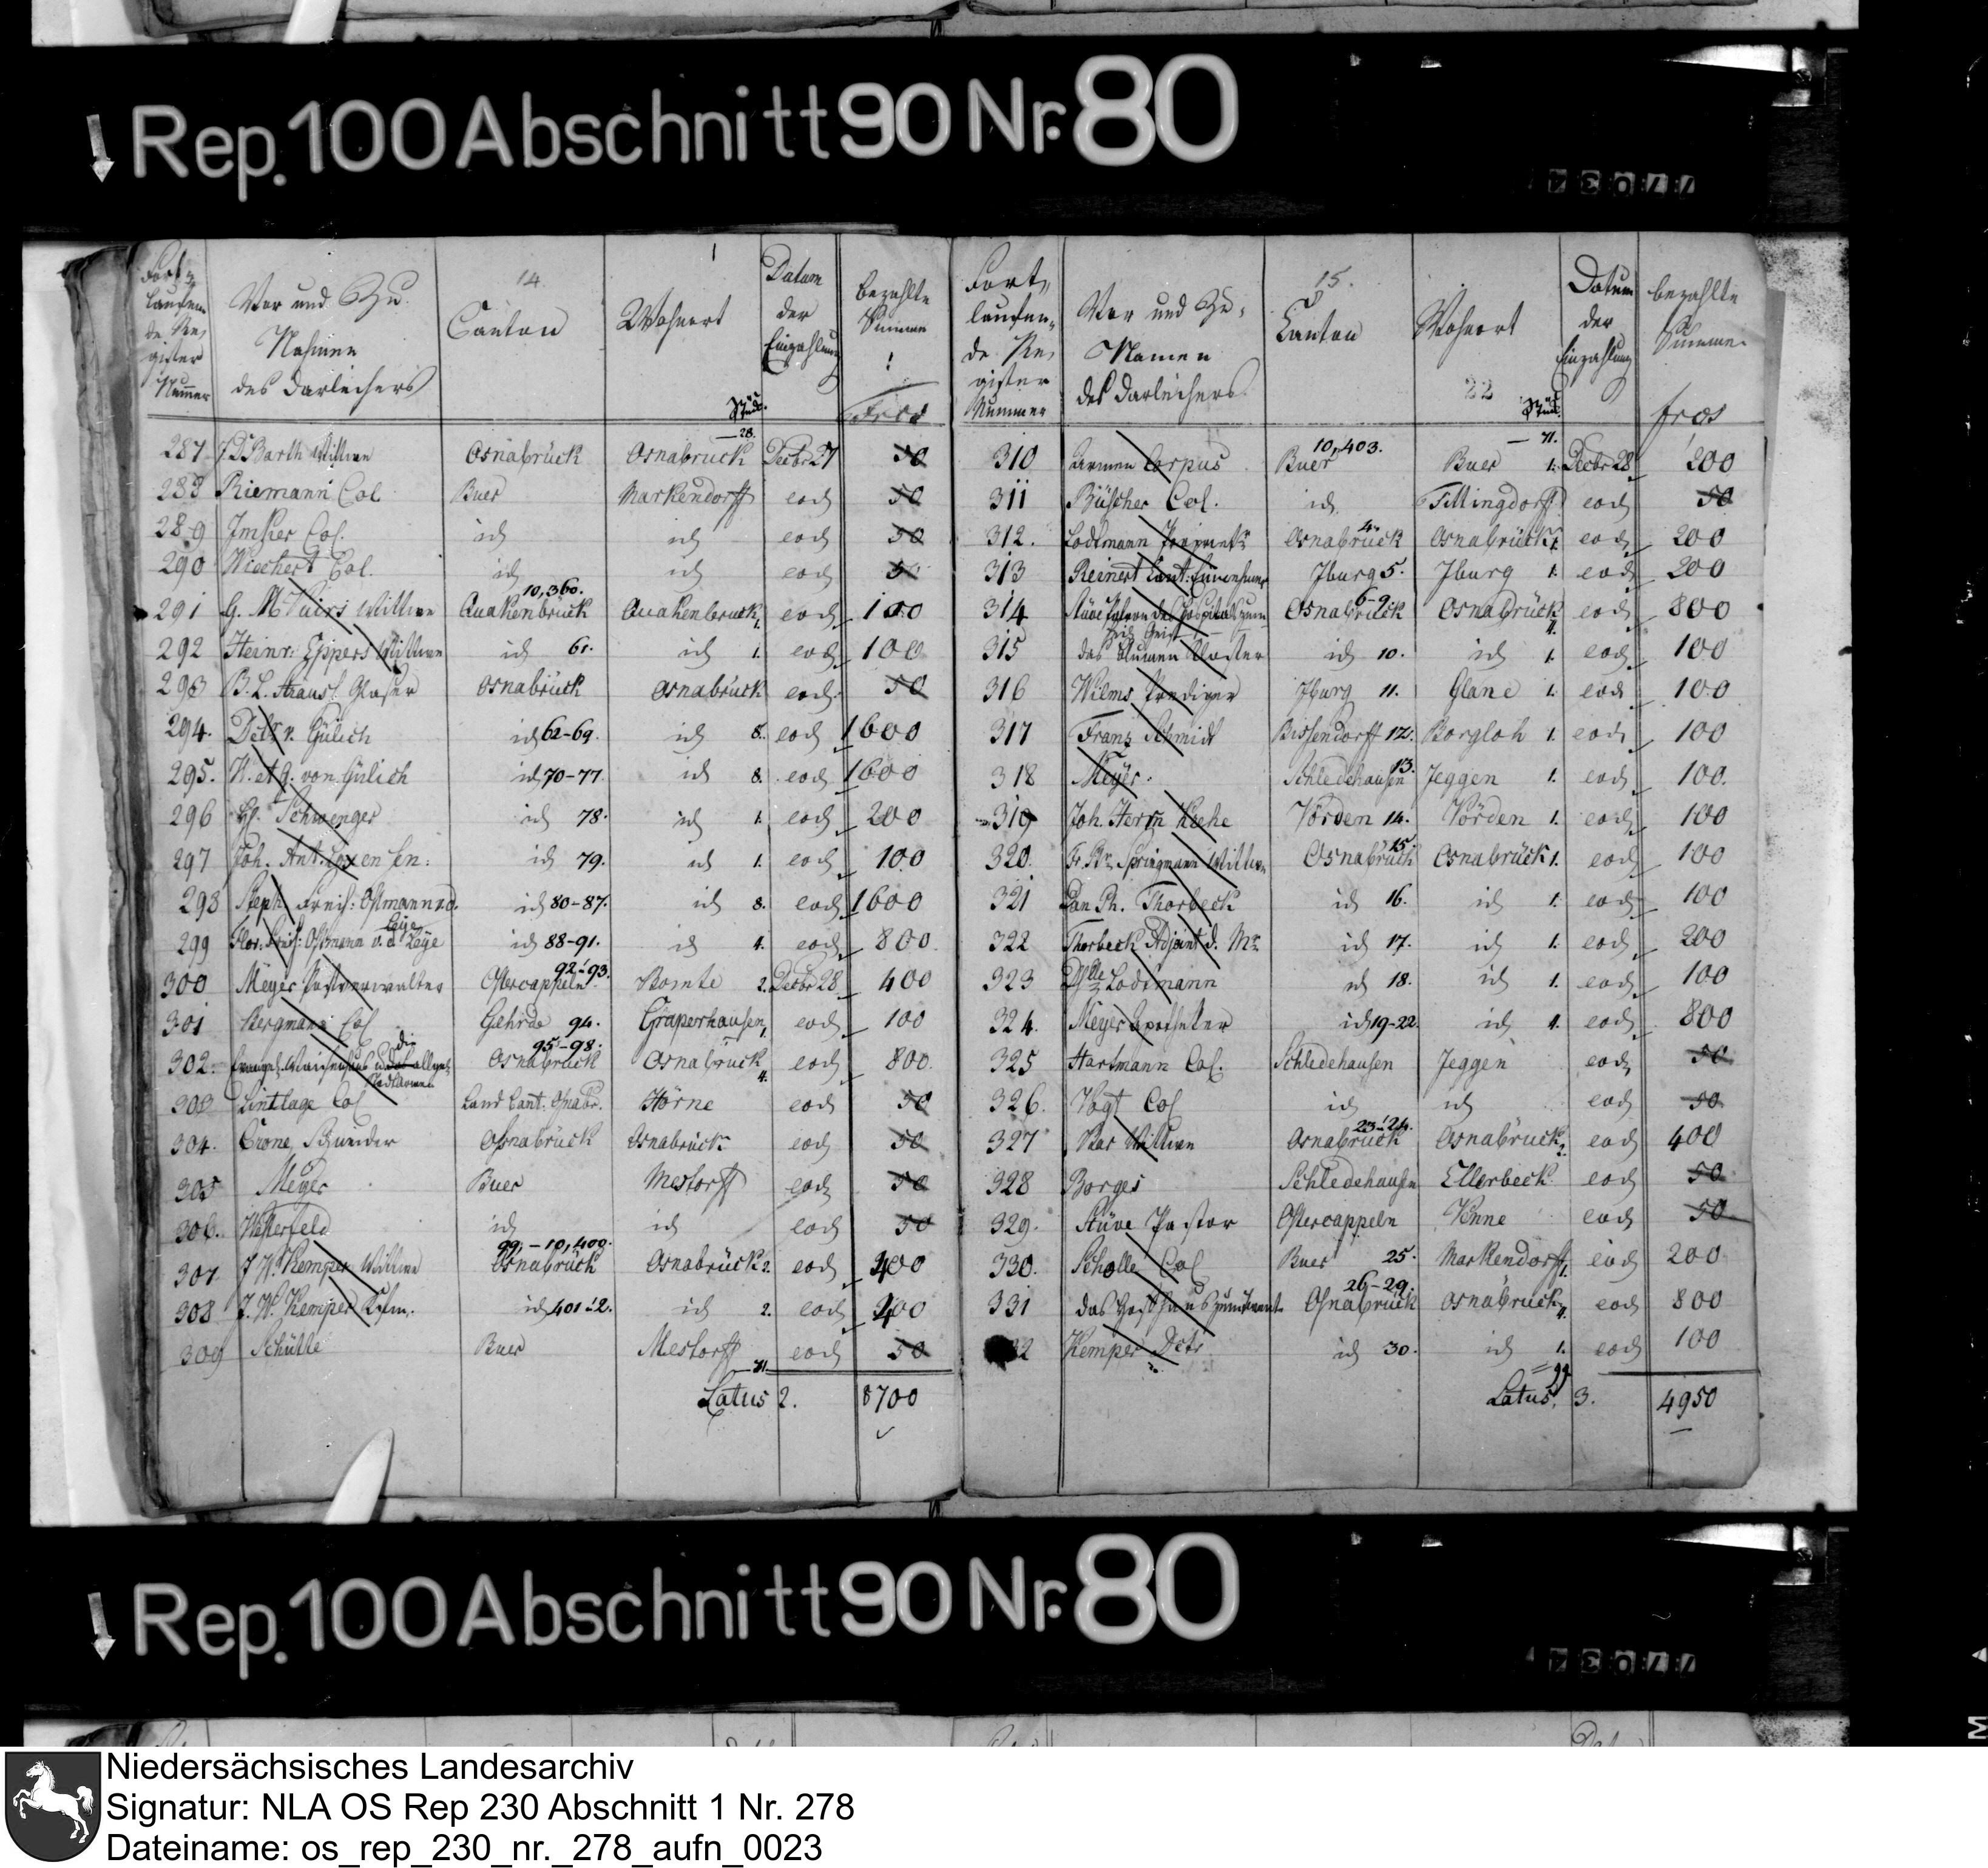 Rep. 100 Abschnitt 90 Nr. 80
77034
14.
Fort-
laufen
de Re-
gister
Nummer
Vor und Zu
Nahmen
des Darleihers
Canton
Wohnort
Stück.
Datum
der
Einzahlung
bezahlte
Summe
Frcs
— 28.
287 J. D. Barth Wittwe Osnabrück Osnabrück Decbr 27 50
288 Riemann Col. Buer Markendorff eod 50
289 Imker Col. id id eod 50
290 Wiechert Col. id id eod 50
291 G. M. Wittwe 10,360. Quakenbrück Quakenbrück 1. eod 100
292 Heinr. Eppers Wittwe id 61. id 1. eod 100
293 B. L. Glaser Osnabrück Osnabrück eod 50
294. Detr v. Gülich id 62-69. id 8. eod 1600
295. W. et G. von Gülich id 70-77. id 8. eod 1600
296 Schwenger id 78. id 1. eod 200
297 Joh. Ant. sen: id 79. id 1. eod 100
298 Steph. Ostmann id 80-87. id 8. eod 1600
299 Flor: Ostmann v. d. Leye id 88-91. id 4. eod 800
300 Meyer Postverwalter Ostercappeln 92 & 93. Bomte 2. Decbr 28 400
301 Bergmann Col Gehrde 94. Graperhausen 1. eod 100
302. Evangel. Waisenhaus die Stadtarmen 95-98. Osnabrück Osnabrück 4. eod 800.
303 Lintlage Col Land Cant. Osnabr. Hörne eod 50
304. Crone, Schneider Osnabrück Osnabrück eod 50
305 Meyer Buer Mestorff eod 50
306. Westerfeld id id eod 50
307 J. W. Kemper Wittwe 99,-10,400. Osnabrück Osnabrück 2. eod 400
308 J. W. Kemper Kfm. id 401 & 2. id 2. eod 400
309 Schütte Buer Mestorff eod 50
71.
Latus 2. 8700
15.
Fort-
laufen-
de Re-
gister
Nummer
Vor und Zu-
Namen
des Darleihers
Canton
Wohnort
22
Stück
Datum
der
Einzahlung
bezahlte
Summe
frcs
— 71.
310 Armen Corpus 10,403. Buer Buer 1. Decbr 28 200
311 Büscher Col. id. Tittingdorf eod 50
312. Lodtmann 4. Osnabrück Osnabrück 1. eod 200
313 Reinert Cant: Einnehmer Jburg 5. Jburg 1. eod 200
314 Stüve Patron des Hospitals zum Heil. Geist 6-9. Osnabrück Osnabrück 4. eod 800
315 das Kloster id 10. id 1. eod 100
316 Wilms Prediger Jburg 11. Glane 1. eod 100
317 Franz Schmidt Bissendorff 12. Borgloh 1. eod 100
318 Meyer. Schledehausen 13. Jeggen 1. eod 100.
319 Joh. Herm Vörden 14. Vörden 1. eod 100
320. Springmann Wittwe 15. Osnabrück Osnabrück 1. eod 100
321 Thorbeck id 16. id 1. eod 100
322 Thorbeck Adjoint d. Mr. id 17. id 1. eod 200
323 Dslle Lodtmann id 18. id 1. eod 100
324. Meyer Apotheker id 19-22. id 4. eod 800
325 Hartmann Col. Schledehausen Jeggen eod 50
326. Vogt Col id id eod 50
327 Wittwe 23 & 24. Osnabrück Osnabrück 2. eod 400
328 Borges Schledehausen Ellerbeck eod 50
329. Stüve Pastor Ostercappeln Venne eod 50
330. Scholle Col Buer 25. Markendorff 1. eod 200
331 das Gasthaus 26-29. Osnabrück Osnabrück 4. eod 800
332 Kemper Detr. id 30. id 1. eod 100
= 99
Latus 3. 4950
Rep. 100 Abschnitt 90 Nr. 80
77034
Niedersächsisches Landesarchiv
Signatur: NLA OS Rep 230 Abschnitt 1 Nr. 278
Dateiname: os_rep_230_nr._278_aufn_0023